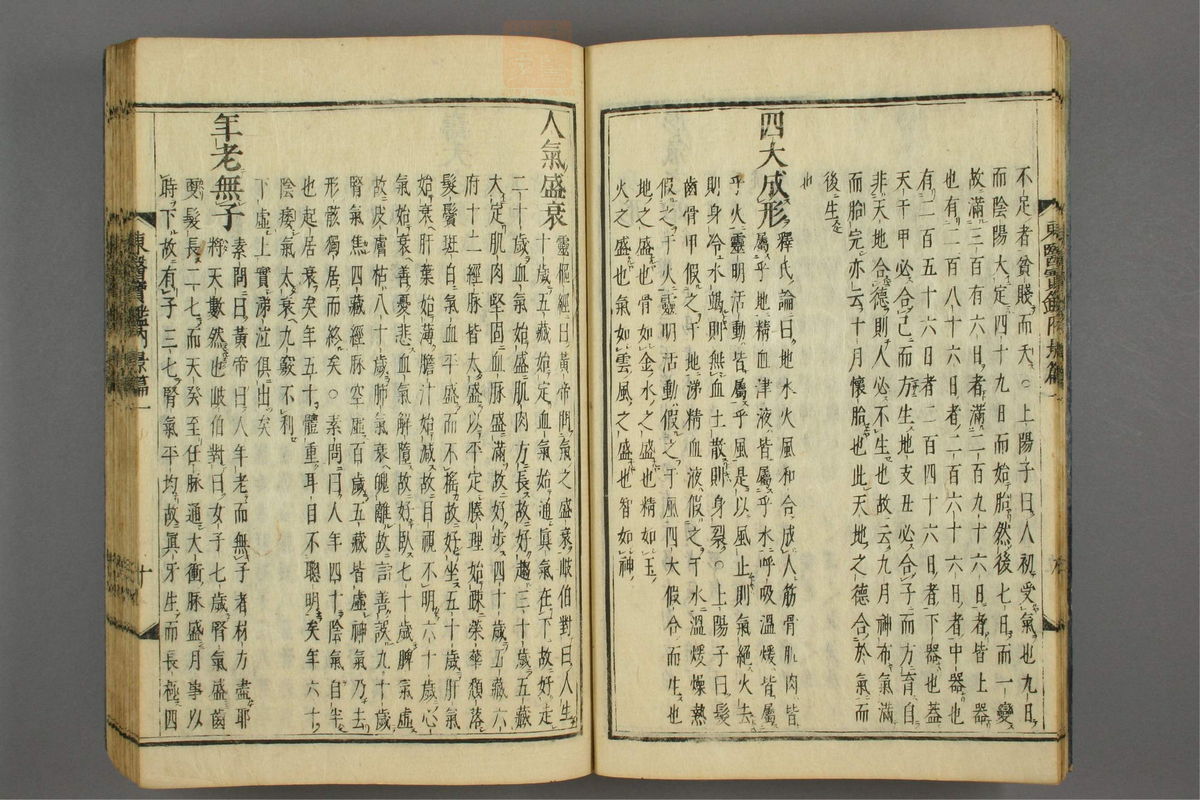 不足者貧賤而夭○上陽子曰人初受氣也九日
而陰陽大定四十九日而始胎然後七日而一變
故滿三百有六日者滿二百九十六日者皆上器
也有二百八十六日者二百六十六日者中器也
有二百五十六日者二百四十六日者下器也蓋
天干甲必合己而方生地支丑必合子而方育自
非天地合德則人必不生也故云九月神布氣滿
而胎完亦云十月懷胎也此天地之德合於氣而
後生
也
四大成形
釋氏論曰地水火風和合成人筋骨肌肉皆
屬乎地精血津液皆屬乎水呼吸溫煖皆屬
乎火靈明活動皆屬乎風是以風止則氣絕火去
則身冷水竭則無血土散則身裂○上陽子曰髮
齒骨甲假之于地涕精血液假之于水溫煖燥熱
假之于火靈明活動假之于風四大假合而生也
地之盛也骨如金水之盛也精如玉
火之盛也氣如雲風之盛也智如神
人氣盛衰
靈樞經曰黃帝問氣之盛衰歧伯對曰人生
十歲五藏始定血氣始通眞氣在下故好走
二十歲血氣始盛肌肉方長故好趨三十歲五藏
大定肌肉堅固血脉盛滿故好步四十歲五藏六
府十二經脉皆太盛以平定腠理始踈榮華頹落
髮鬢斑白氣血平盛而不搖故好坐五十歲肝氣
始衰肝葉始薄膽汁始減故目視不明六十歲心
氣始衰善憂悲血氣解墮故好臥七十歲脾氣虛
故皮膚枯八十歲肺氣衰魄離故言善誤九十歲
腎氣焦四藏經脉空虛百歲五藏皆虛神氣乃去
形骸獨居而終矣○素問曰人年四十陰氣自半
也起居衰矣年五十體重耳目不聰明矣年六十
陰痿氣太衰九竅不利
下虛上實涕泣俱出矣
年老無子
素問曰黃帝曰人年老而無子者材力盡耶
將天數然也歧伯對曰女子七歲腎氣盛齒
更髮長二七而天癸至任脉通大衝脉盛月事以
時下故有子三七腎氣平均故眞牙生而長極四
東醫寶鑑內景篇一
十